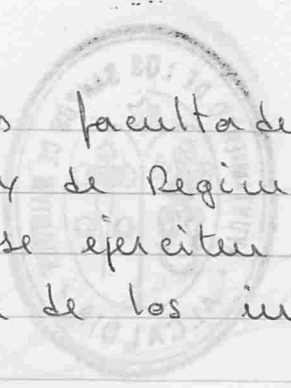 s facultade
y de Regim
se ejerciten
de los in